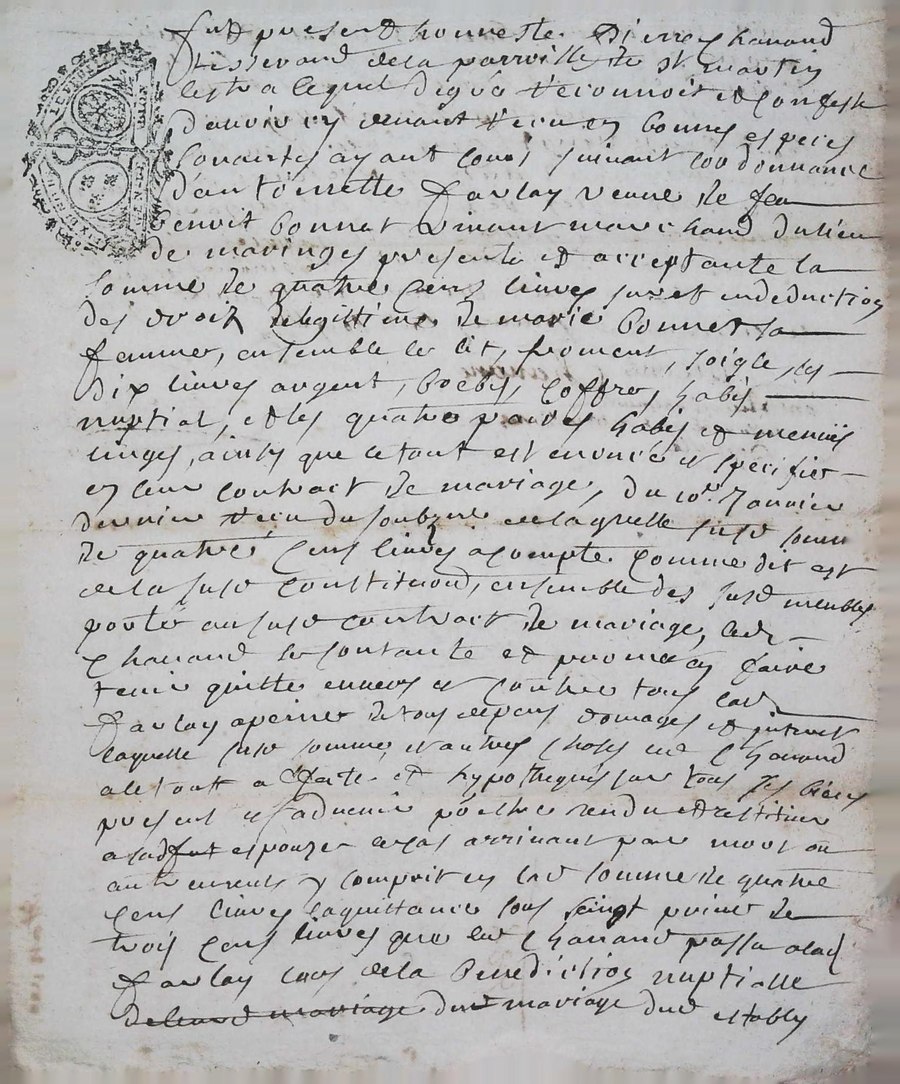 fut present honneste Pierre Chanand
tisserand de la parroisse de st martin
lestra lequel de gré reconnoit et confesse
d'avoir cy devant receu en bonnes especes
sonantes ayant cours suivant l'ordonnance
d'antoinette farlay veuve de feu
benoit bonnet vivant marchand du lieu
de maringes presente et acceptante la
somme de quatre cens livres sur et en deduction
des droit de legittime de marie bonnet sa
femme, ensemble le lit, froment, soigle, les
dix livres argent, coffre, habis
nuptial, et les quatre paires habis et menus
linges, ainsy que le tout est enoncé et speciffié
en leur contrait de mariage, du 10e Janvier
dernier receu du soubzné de laquelle susd somme
de quatre cens livres a compte comme dit est
de la susd constitution, ensemble des susd meubles
porté au susd contrait de mariage, led
Chanand se contante et promet en faire
tenir quitte envers et contre tous lad
farlay a peine de tous depens domages et interest
laquelle susd somme, et autres choses led Chanand
a le tout affecté et hypothequés sur tous ses biens
present et advenir p estre rendu et restitué
a sad espouze le cas arrivant par mort ou
autrement y comprit en lad somme de quatre
cens livres la quittance sous seingt privé de
trois cens livres que led Chanand passa a lad
farlay lors de la benediction nuptialle
de leurd mariage dud mariage dud estably